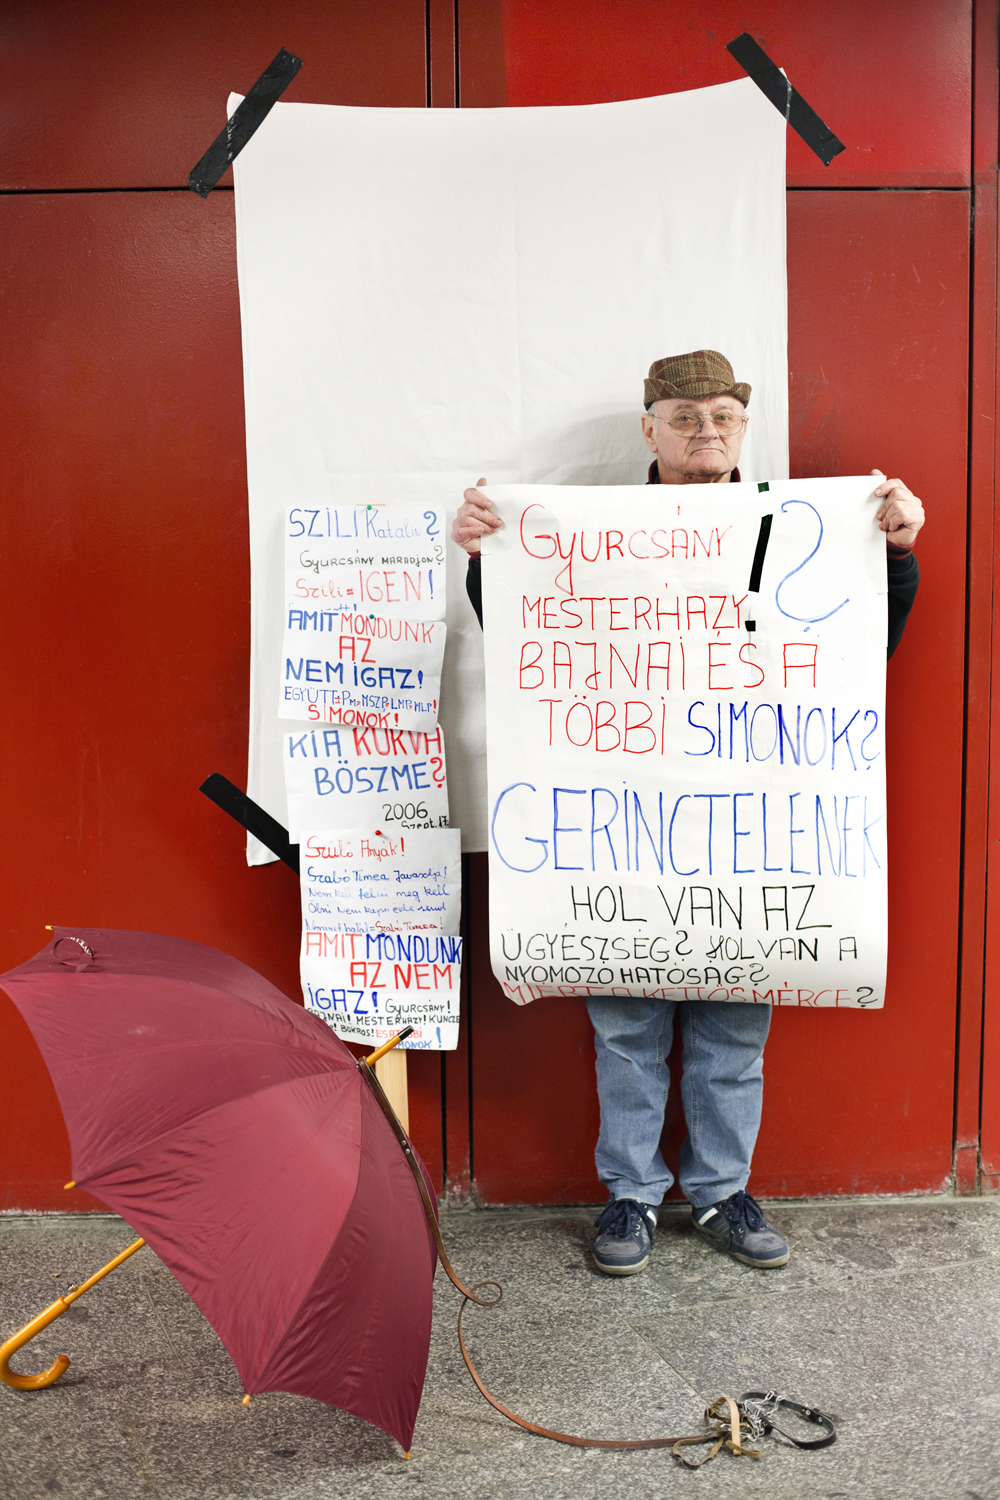 SZILI Katalin?
GYURCSÁNY MARADJON?
Szili = IGEN!
AMIT MONDUNK
AZ
NEM IGAZ!
EGYÜTT=PM=MSZP=LMP=MLP!
SIMONOK!
KIA KURVA
BÖSZME?
2006
Szept. 17.
Szülő Anyák!
Szabó Tímea Javasolja!
Nem kell félni meg kell
Ölni Nem kapni érte
Német halál = Szabó Tímea!
AMIT MONDUNK
AZ NEM
IGAZ! GYURCSÁNY!
BAJNAI! MESTERHÁZY! KUNCZE
BOKROS! ÉS A TÖBBI
SIMONOK!
GYURCSÁNY !?
MESTERHÁZY
BAJNAI ÉS A
TÖBBI SIMONOK?
GERINCTELENEK
HOL VAN AZ
ÜGYÉSZSÉG? HOL VAN A
NYOMOZÓ HATÓSÁG?
MIÉRT A KETTŐS MÉRCE?